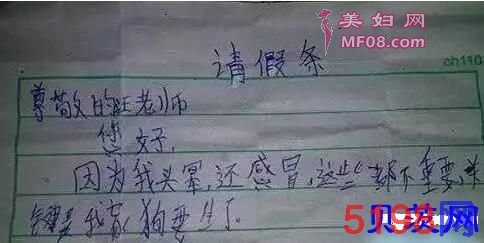 美妇网
MF08.com
请假条
ch110
尊敬的汪老师
您好,
因为我头晕,还感冒,这些都不重要,关
键是我家狗要生了。
5198
贝装网